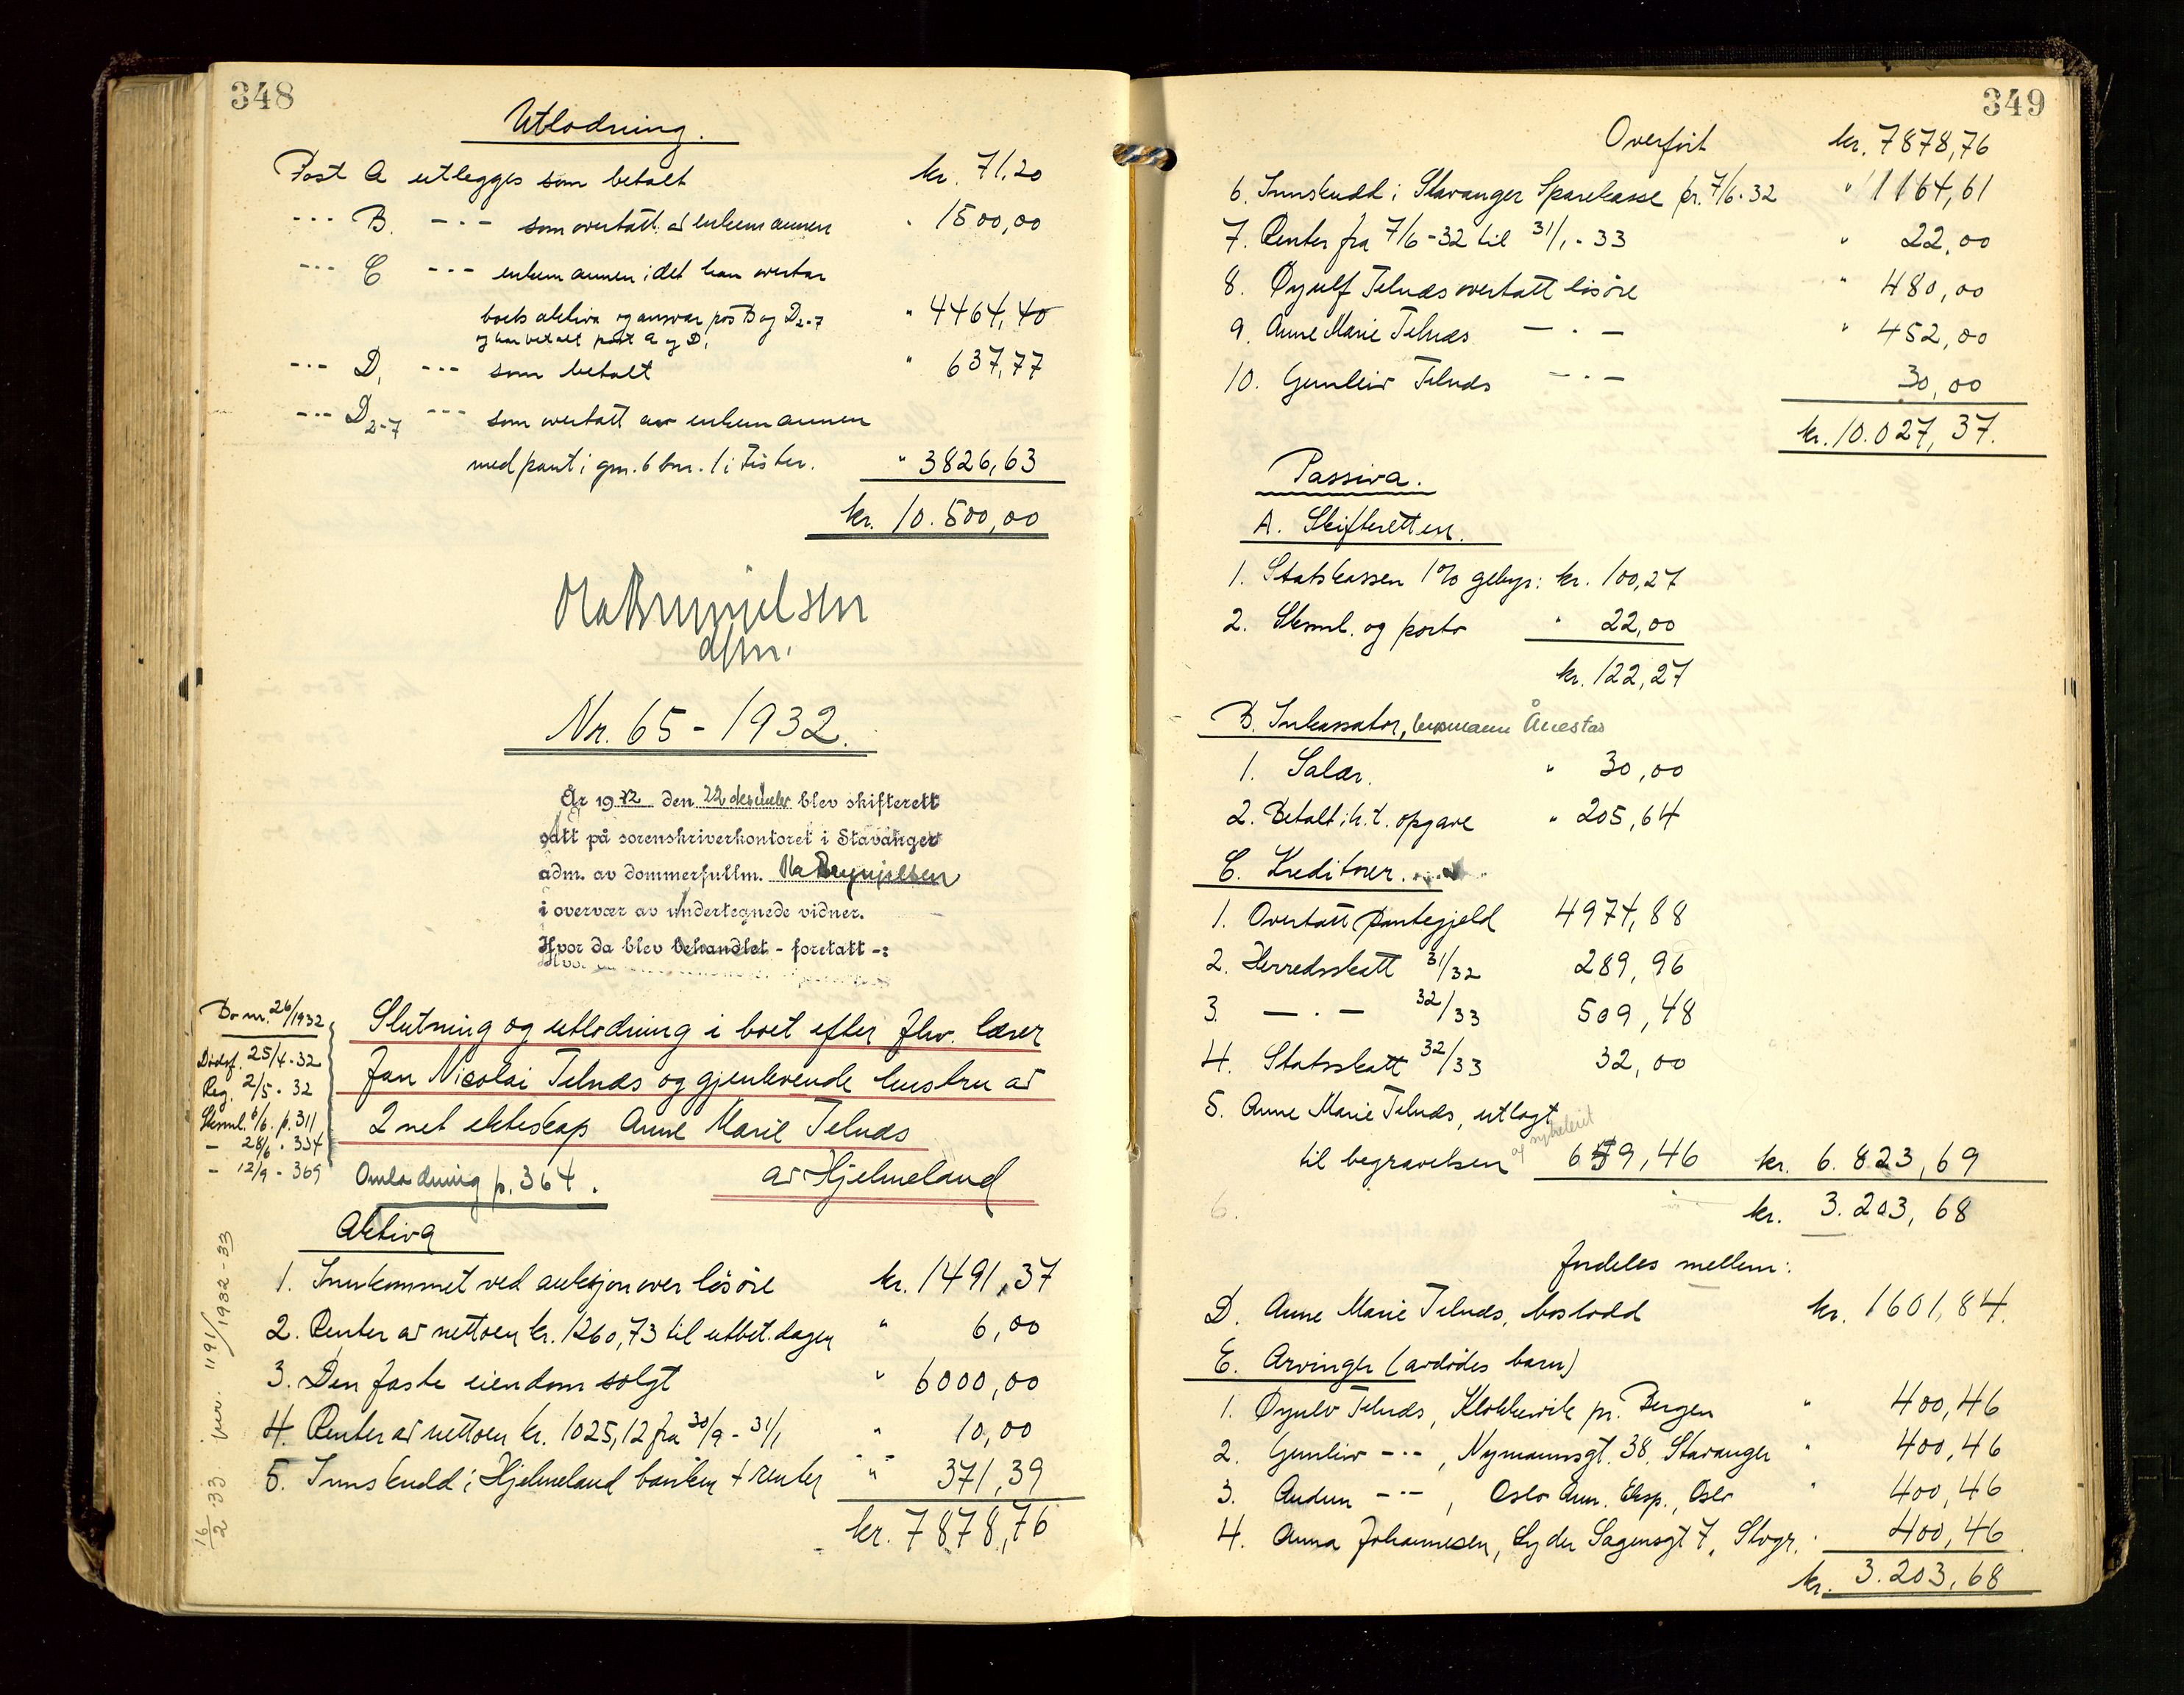 348
Utlodning.
Post A utlegges som betalt kr. 71.20
--- B. -·- som overtatt av enkemannen " 1500,00
--- C --- enkemannen idet han overtar
boets aktiva og ansvar post B og D2-7
og har betalt post A og D1 " 4464,40
--- D1 --- som betalt " 637,77
--- D2-7 --- som overtatt av enkemannen
med pant i gnr. 6 bnr. 1 i Fister. " 3826,63
kr. 10.500,00
Ola Brynjelsen
dfm.
Nr. 65 - 1932.
År 1932 den 22 desember blev skifterett
satt på sorenskriverkontoret i Stavanger
adm. av dommerfullm. Ola Brynjelsen
i overvær av undertegnede vidner.
Hvor da blev behandlet - foretatt -:
Bo nr. 26/1932
Dødsf. 25/4-32
Reg. 2/5-32
Skml. 6/6. p. 311
- 28/6 - 334
- 12/9 - 369
Slutning og utlodning i boet efter fhv. lærer
Jan Nicolai Telnæs og gjenlevende hustru av
2net ekteskap Anne Marie Telnæs
av Hjelmeland
Omlodning p. 364.
Aktiva
1. Innkommet ved auksjon over løsøre kr. 1491,37
2. Renter av nettoen kr. 1260,73 til utbet.dagen " 6,00
3. Den faste eiendom solgt " 6000,00
4. Renter av nettoen kr. 1025,12 fra 30/9 - 31/1 " 10,00
5. Innskudd i Hjelmeland banken + renter " 371,39
kr. 7878,76
16/2 33 1191/1932-33
349
Overført kr. 7878,76
6. Innskudd i Stavanger Sparekasse pr. 7/6-32 " 1164,61
7. Renter fra 7/6-32 til 31/1-33 " 22,00
8. Øyulf Telnæs overtatt løsøre " 480,00
9. Anne Marie Telnæs — · — " 452,00
10. Gunleiv Telnæs — · — 30,00
kr. 10.027,37.
Passiva.
A. Skifteretten.
1. Statskassen 1% gebyr: kr. 100,27
2. Skml. og porto " 22,00
kr. 122,27
B. Inkassator, lensmann Ånestad
1. Salær. " 30,00
2. Betalt i h. t. opgave " 205,64
C. Kreditorer.
1. Overtatt pantegjeld 4974,88
2. Herredsskatt 31/32 289,96
3. — · — 32/33 509,48
4. Statsskatt 32/33 32,00
5. Anne Marie Telnæs, utlagt
til begravelsen 659,46 kr. 6.823,69
6.
kr. 3.203,68
fordeles mellem:
D. Anne Marie Telnæs, boslodd kr. 1601,84.
E. Arvinger (avdødes barn)
1. Øyulv Telnæs, Klokkervik pr. Bergen " 400,46
2. Gunleiv -·-, Nymannsgt. 38, Stavanger " 400,46
3. Audun -·-, Oslo Ann. Eksp., Oslo " 400,46
4. Anna Johannesen, Lyder Sagensgt 7, Stvgr. " 400,46
kr. 3.203,68